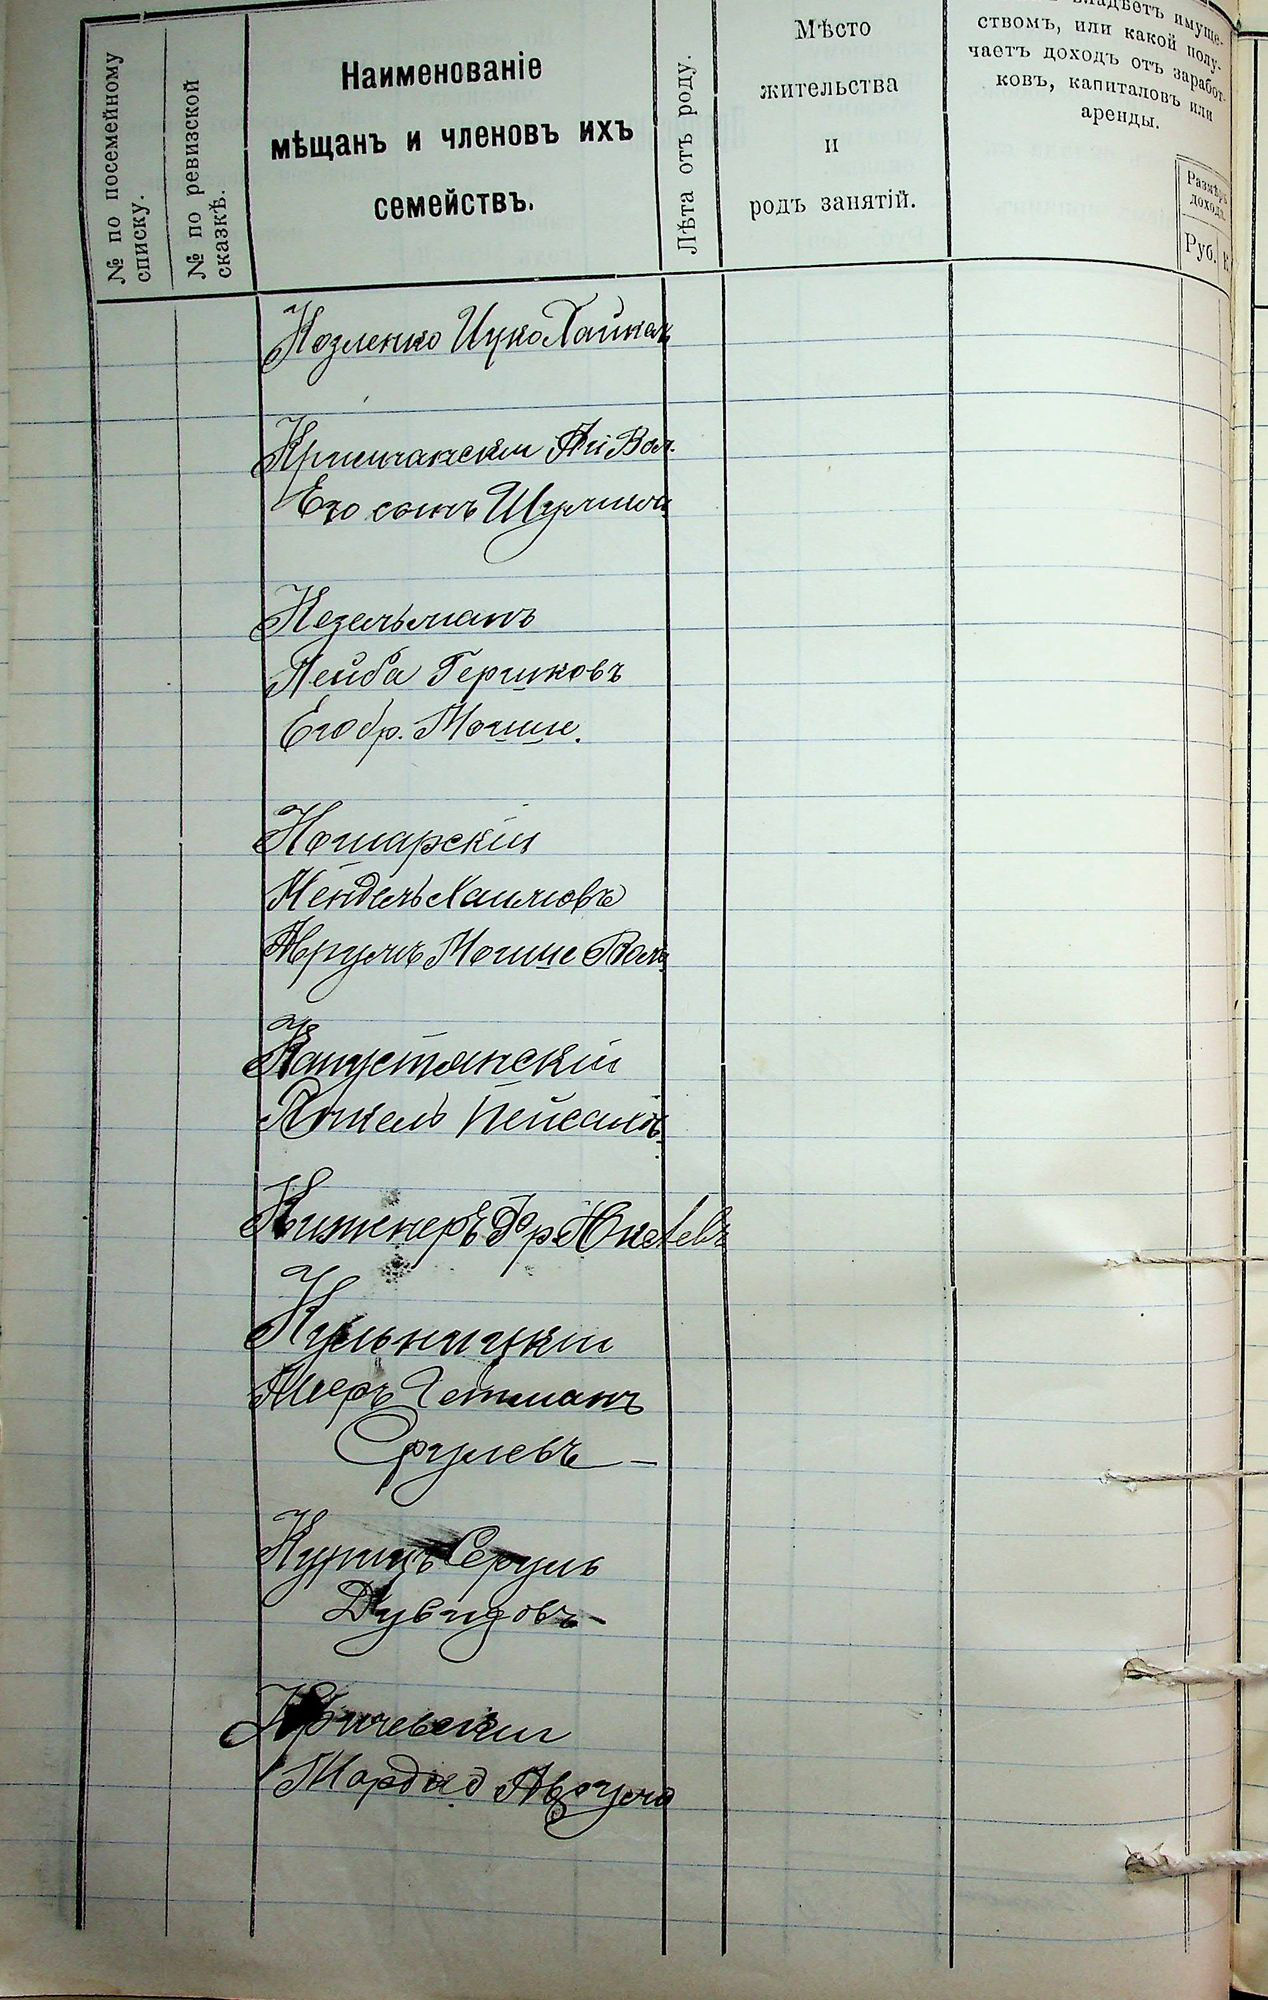 № по посемейному
списку.
№ по ревизской
сказкѣ.
Наименованіе
мѣщанъ и членовъ ихъ
семействъ.
Лѣта отъ роду.
Мѣсто
жительства
и
родъ занятій.
владѣетъ имуще-
ствомъ, или какой полу-
чаетъ доходъ отъ заработ-
ковъ, капиталовъ или
аренды.
Размѣръ
дохода.
Руб.
К.
Козленко Ицко Хаимов
Его сынъ Шулим
Кезельманъ
Лейба Гершковъ
Его бр. Мошше.
Кошарскій
Мендель Хаимовъ
Аврумъ Мошше Вол
Капустянскій
Янкель Пейсаховъ
Кижнеръ
Кульницкій
Мееръ Гетманъ
Срулевъ —
Купицъ Сруль
Дувидовъ —
Кричевскій
Мордко Аврумо